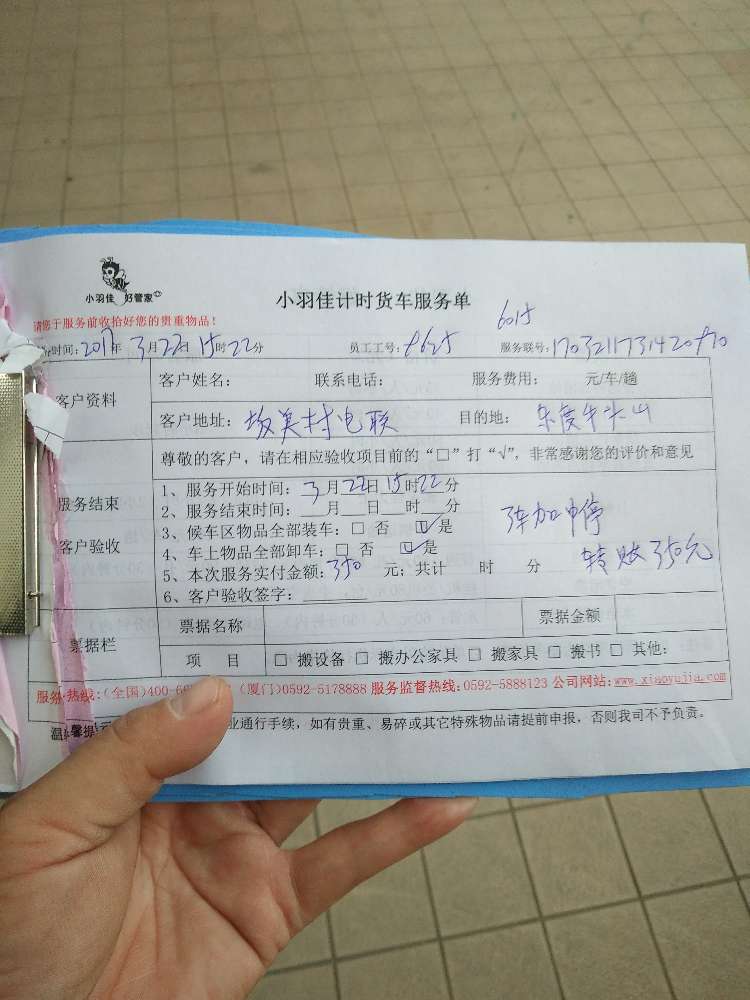 小羽佳 好管家
小羽佳计时货车服务单
请您于服务前收拾好您的贵重物品!
6015
时间:2017年3月22日15时22分 员工工号: 服务联号:
客户资料
客户姓名: 联系电话: 服务费用: 元/车/趟
客户地址: 村电联 目的地: 牛头山
尊敬的客户,请在相应验收项目前的“□”打“√”,非常感谢您的评价和意见
服务结束
客户验收
1、服务开始时间:3月22日15时22分
2、服务结束时间:__月__日__时__分
3、候车区物品全部装车:□ 否 ☑ 是
4、车上物品全部卸车:□ 否 ☑ 是
5、本次服务实付金额:350 元;共计 时 分
6、客户验收签字:
转账350元
票据栏
票据名称 票据金额
项 目 □ 搬设备 □ 搬办公家具 □ 搬家具 □ 搬书 □ 其他:
服务热线:(全国)400-6 (厦门)0592-5178888 服务监督热线:0592-5888123 公司网站:www.xiaoyujia.com
温馨提 业通行手续,如有贵重、易碎或其它特殊物品请提前申报,否则我司不予负责。